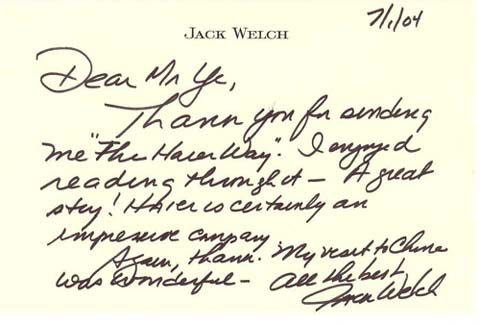 7/1/04
JACK WELCH
Dear Mr Ye,
Thank you for sending
me "The Haier Way". I enjoyed
reading through it - A great
story! Haier is certainly an
impressive company
Again, thank. My visit to China
was wonderful - All the best,
Jack Welch